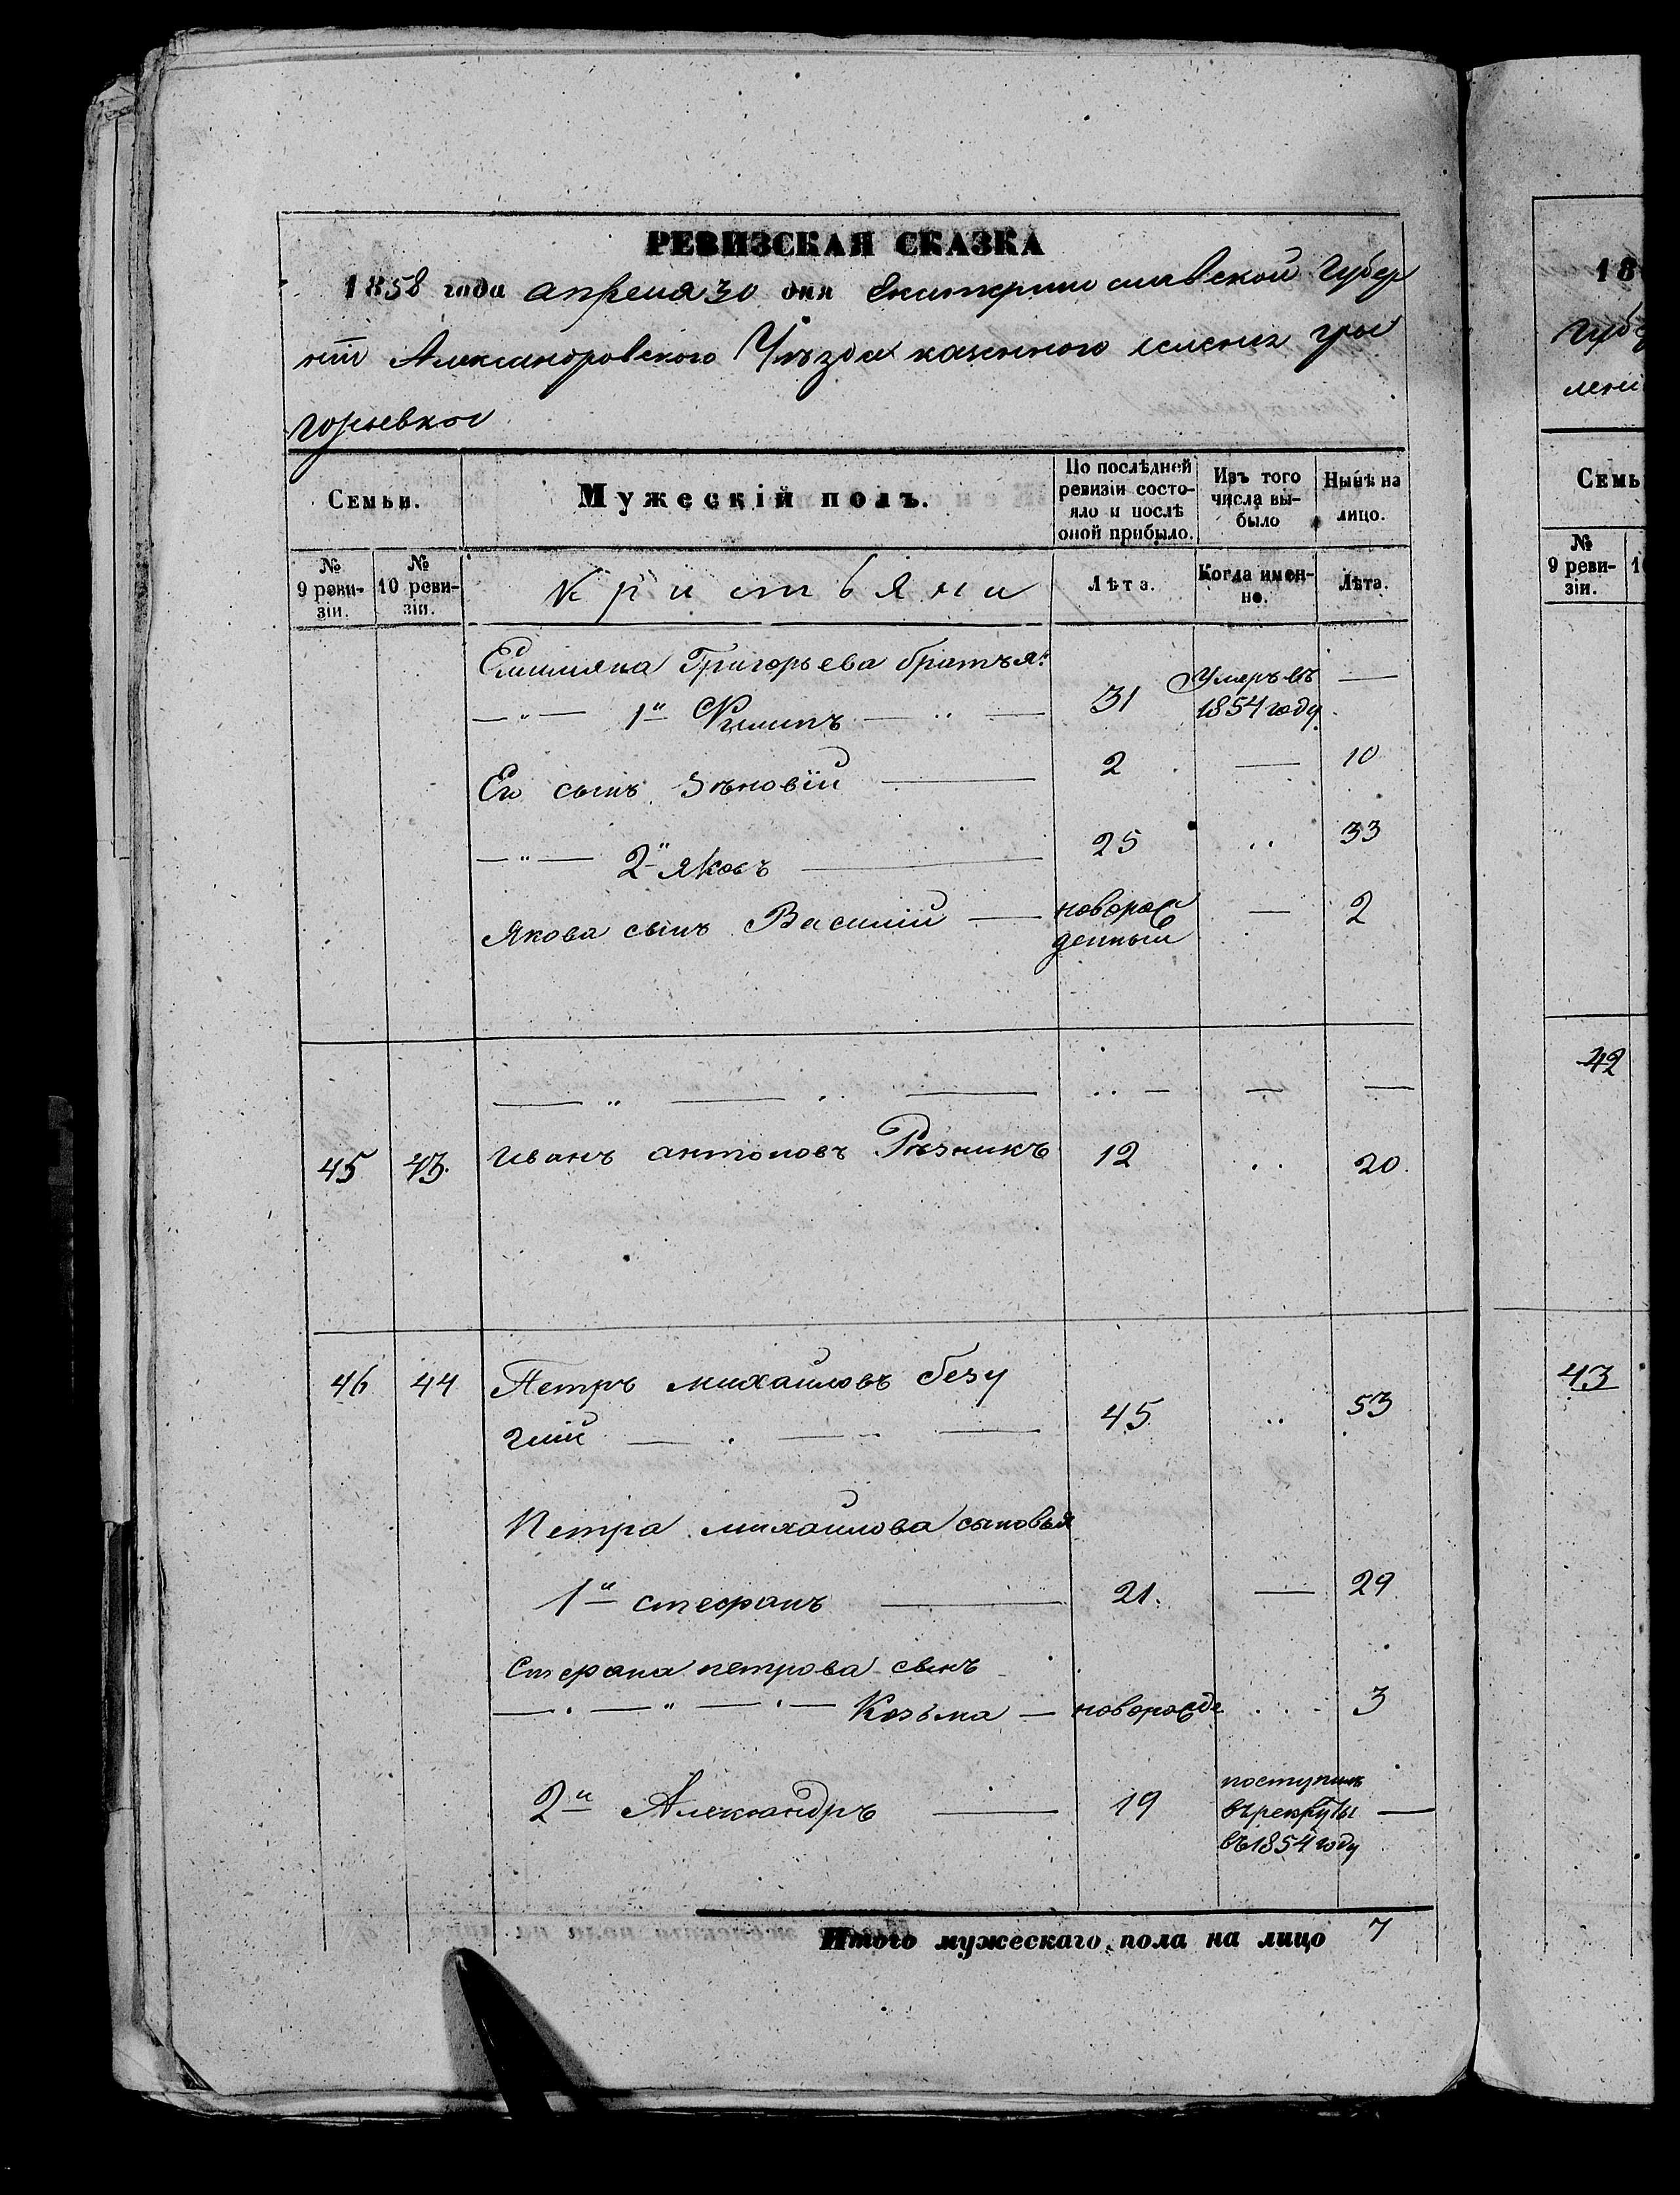 РЕВИЗСКАЯ СКАЗКА
1858 года апреля 30 дня Екатеринославской Губер
ніи Александровского Уѣзда казенного селения Гри
горьевки
Семьи.
Мужескій полъ.
По послѣдней ревизіи состо-
яло и послѣ оной прибыло.
Изъ того числа вы-
было
Нынѣ на лицо.
№ 9 реви-
зіи.
№ 10 реви-
зіи.
Кристьяни
Лѣта.
Когда имен-
но.
Лѣта.
Емильяна Григорьева братъя:
— " — 1й Филипъ — " — 31 Умеръ въ —
1854 году.
Его сынъ Зѣновій — 2 — 10
— " — 2й Яковъ — 25 " 33
Якова сынъ Василій — новорож — 2
денный
— " — " — " — — —
45 43. Иванъ антоновъ Рѣзникъ 12 " 20.
46 44 Петръ михайловъ безу
глій — " — " — 45 " 53
Петра михайлова сыновья
1й стефанъ — 21. — 29
Стефана петрова сынъ
— " — " — " — Козьма — новорожде " 3
2й Александръ — 19 поступилъ
въ рекруты —
въ 1854 году
Итого мужескаго пола на лицо 7
18
Губе
лені
Семь
№ 9 реви-
зіи.
42
43